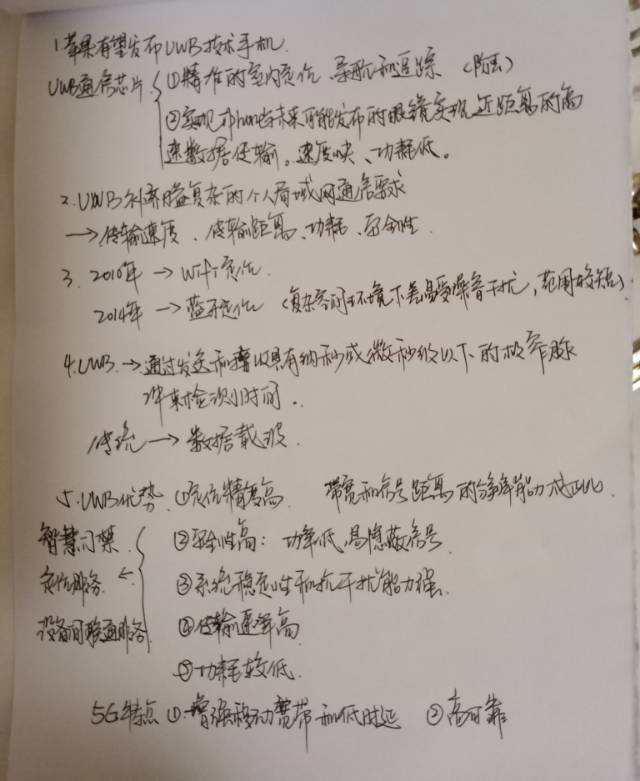 1.苹果有望发布UWB技术手机.
UWB通信芯片 ①精准的室内定位、导航和追踪 (防丢)
②实现iPhone与未来可能发布的眼镜实现近距离的高
速数据传输。速度快、功耗低。
2.UWB补齐日益复杂的个人局域网通信要求
→传输速度、传输距离、功耗、安全性.
3. 2010年 → WiFi定位.
2014年 → 蓝牙定位 (复杂空间环境下差易受噪音干扰,范围较短)
4.UWB.→通过发送和接收具有纳秒或微秒级以下的极窄脉
冲来检测时间..
传统→数据载波.
5.UWB优势 ①定位精度高 带宽和信号距离的分辨能力成正比.
智慧门禁 ②安全性高:功率低,易隐蔽信号.
定位服务 ← ③系统稳定性和抗干扰能力强.
设备间联通服务 ④传输速率高
⑤功耗较低.
5G特点 ①.增强移动宽带和低时延 ②高可靠